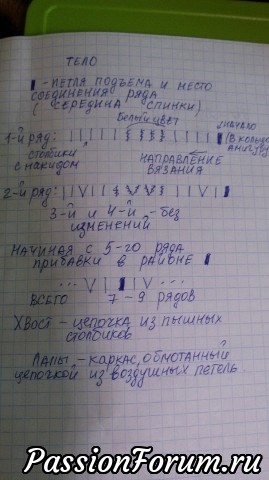 ТЕЛО
- ПЕТЛЯ ПОДЪЕМА И МЕСТО
СОЕДИНЕНИЯ РЯДА
( СЕРЕДИНА СПИНКИ)
БЕЛЫЙ ЦВЕТ
НАЧАЛО
1-Й РЯД:
(В КОЛЬЦО
АМИГУРУМИ)
СТОЛБИКИ
С НАКИДОМ
НАПРАВЛЕНИЕ
ВЯЗАНИЯ
2-Й РЯД:
3-Й И 4-Й - БЕЗ
ИЗМЕНЕНИЙ
НАЧИНАЯ С 5-ГО РЯДА
ПРИБАВКИ В РАЙОНЕ
ВСЕГО 7-9 РЯДОВ
ХВОСТ - ЦЕПОЧКА ИЗ ПЫШНЫХ
СТОЛБИКОВ
ЛАПЫ - КАРКАС, ОБМОТАННЫЙ
ЦЕПОЧКОЙ ИЗ ВОЗДУШНЫХ ПЕТЕЛЬ
PassionForum.ru